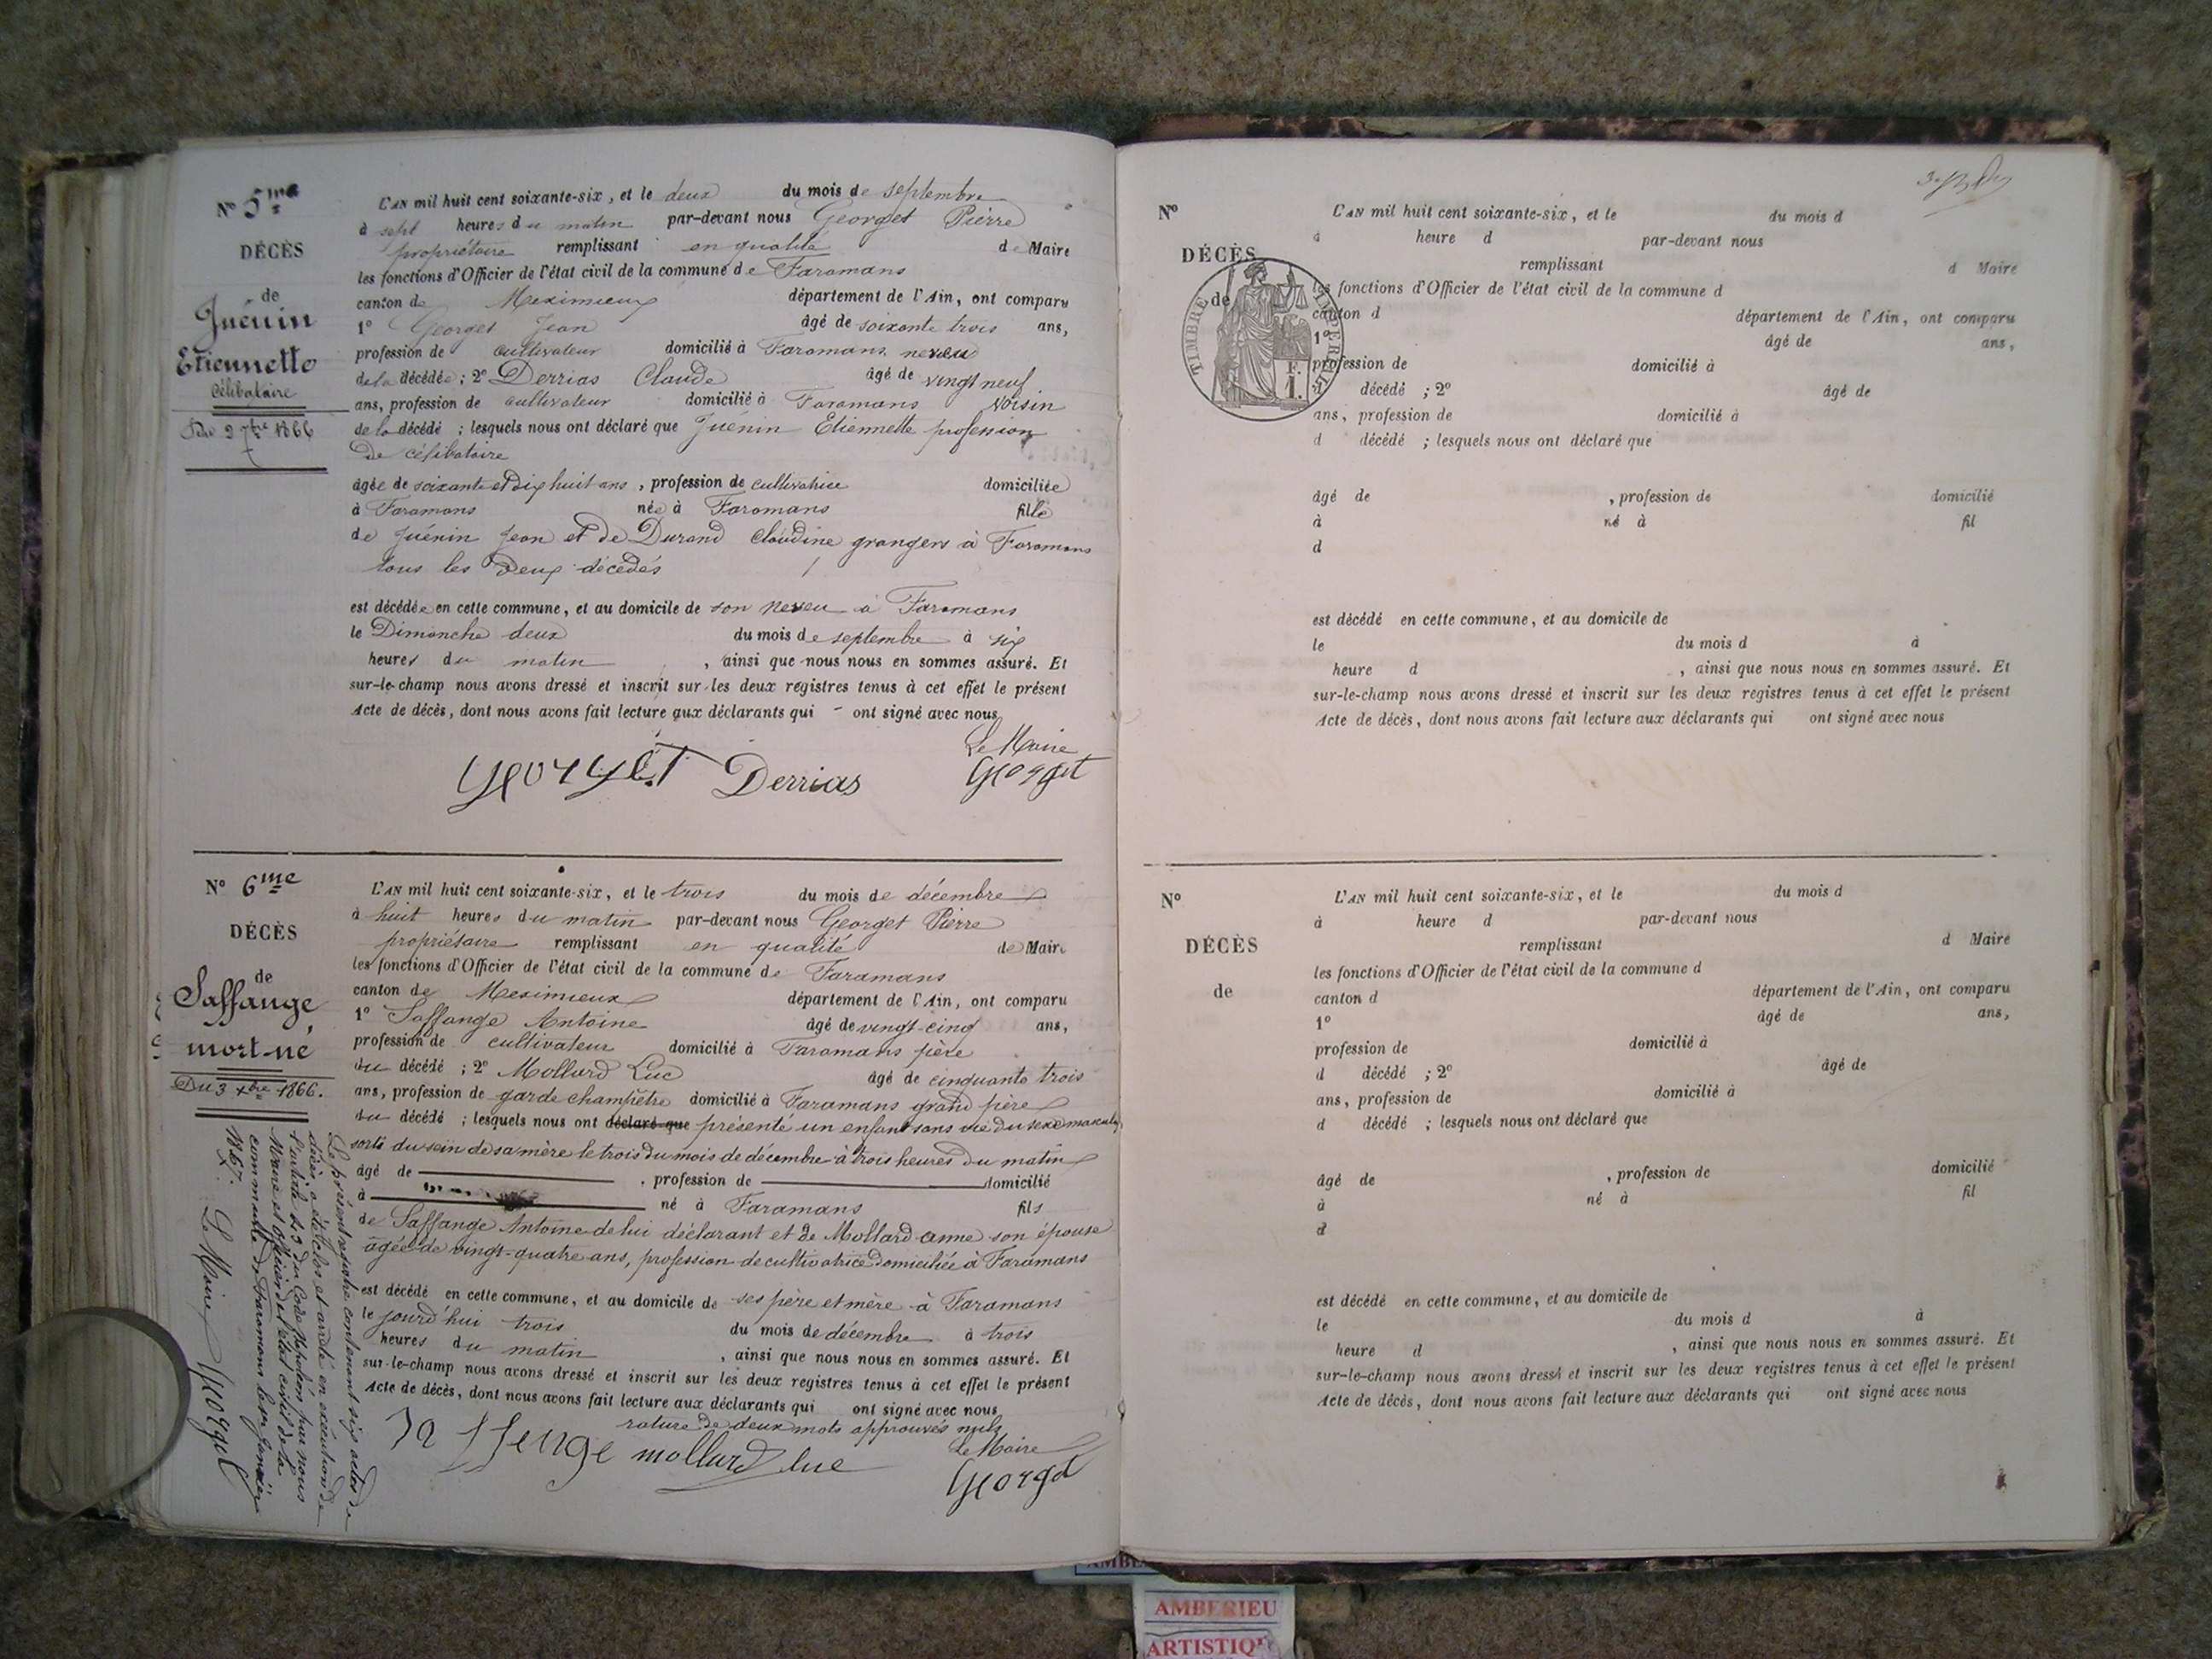 N° 5me
DÉCÈS
de
Juénin
Etiennette
célibataire
Du 2 7bre 1866
L'AN mil huit cent soixante-six, et le deux du mois de septembre
à sept heures du matin par-devant nous Georget Pierre
propriétaire remplissant en qualité de Maire
les fonctions d'Officier de l'état civil de la commune de Faramans
canton de Meximieux département de l'Ain, ont comparu
1° Georget Jean âgé de soixante trois ans,
profession de cultivateur domicilié à Faramans neveu
de la décédée ; 2° Derrias Claude âgé de vingt neuf
ans, profession de cultivateur domicilié à Faramans voisin
de la décédé ; lesquels nous ont déclaré que Juénin Etiennette profession
De célibataire
âgée de soixante et dix huit ans , profession de cultivatrice domiciliée
à Faramans née à Faramans fille
de Juénin Jean et de Durand Claudine grangers à Faramans
tous les Deux décédés
est décédée en cette commune, et au domicile de son neveu à Faramans
le Dimanche deux du mois de septembre à six
heures du matin , ainsi que nous nous en sommes assuré. Et
sur-le-champ nous avons dressé et inscrit sur les deux registres tenus à cet effet le présent
Acte de décès, dont nous avons fait lecture aux déclarants qui - ont signé avec nous
Le Maire
georget Derrias Georget
N° 6me
DÉCÈS
de
Saffange
mort-né
Du 3 xbre 1866.
L'AN mil huit cent soixante-six, et le trois du mois de décembre
à huit heures du matin par-devant nous Georget Pierre
propriétaire remplissant en qualité de Maire
les fonctions d'Officier de l'état civil de la commune de Faramans
canton de Meximieux département de l'Ain, ont comparu
1° Saffange Antoine âgé de vingt-cinq ans,
profession de cultivateur domicilié à Faramans père
du décédé ; 2° Mollard Luc âgé de cinquante trois
ans, profession de garde champêtre domicilié à Faramans grand père
du décédé ; lesquels nous ont déclaré que présenté un enfant sans vie du sexe masculin
sorti du sein de sa mère le trois du mois de décembre à trois heures du matin
âgé de , profession de domicilié
à né à Faramans fils
de Saffange Antoine de lui déclarant et de Mollard anne son épouse
âgée de vingt-quatre ans, profession de cultivatrice domiciliée à Faramans
est décédé en cette commune, et au domicile de ses père et mère à Faramans
le jourd'hui trois du mois de décembre à trois
heures du matin , ainsi que nous nous en sommes assuré. Et
sur-le-champ nous avons dressé et inscrit sur les deux registres tenus à cet effet le présent
Acte de décès, dont nous avons fait lecture aux déclarants qui ont signé avec nous
rature de deux mots approuvés nuls
Le Maire
Saffenge mollard luc Georget
Le présent registre contenant six actes de
décès, a été clos et arrêté en exécution de
l'article 43 du Code Napoléon par nous
Maire et officier de l'état civil de la
commune de Faramans le 1er janvier
1867.
Le Maire Georget
N°
DÉCÈS
de
TIMBRE IMPERIAL
1 F.
L'AN mil huit cent soixante-six, et le du mois d
à heure d par-devant nous
remplissant d Maire
les fonctions d'Officier de l'état civil de la commune d
canton d département de l'Ain, ont comparu
1° âgé de ans,
profession de domicilié à
d décédé ; 2° âgé de
ans, profession de domicilié à
d décédé ; lesquels nous ont déclaré que
âgé de , profession de domicilié
à né à fil
d
est décédé en cette commune, et au domicile de
le du mois d à
heure d , ainsi que nous nous en sommes assuré. Et
sur-le-champ nous avons dressé et inscrit sur les deux registres tenus à cet effet le présent
Acte de décès, dont nous avons fait lecture aux déclarants qui ont signé avec nous
N°
DÉCÈS
de
L'AN mil huit cent soixante-six, et le du mois d
à heure d par-devant nous
remplissant d Maire
les fonctions d'Officier de l'état civil de la commune d
canton d département de l'Ain, ont comparu
1° âgé de ans,
profession de domicilié à
d décédé ; 2° âgé de
ans, profession de domicilié à
d décédé ; lesquels nous ont déclaré que
âgé de , profession de domicilié
à né à fil
d
est décédé en cette commune, et au domicile de
le du mois d à
heure d , ainsi que nous nous en sommes assuré. Et
sur-le-champ nous avons dressé et inscrit sur les deux registres tenus à cet effet le présent
Acte de décès, dont nous avons fait lecture aux déclarants qui ont signé avec nous
AMBERIEU
ARTISTIQU